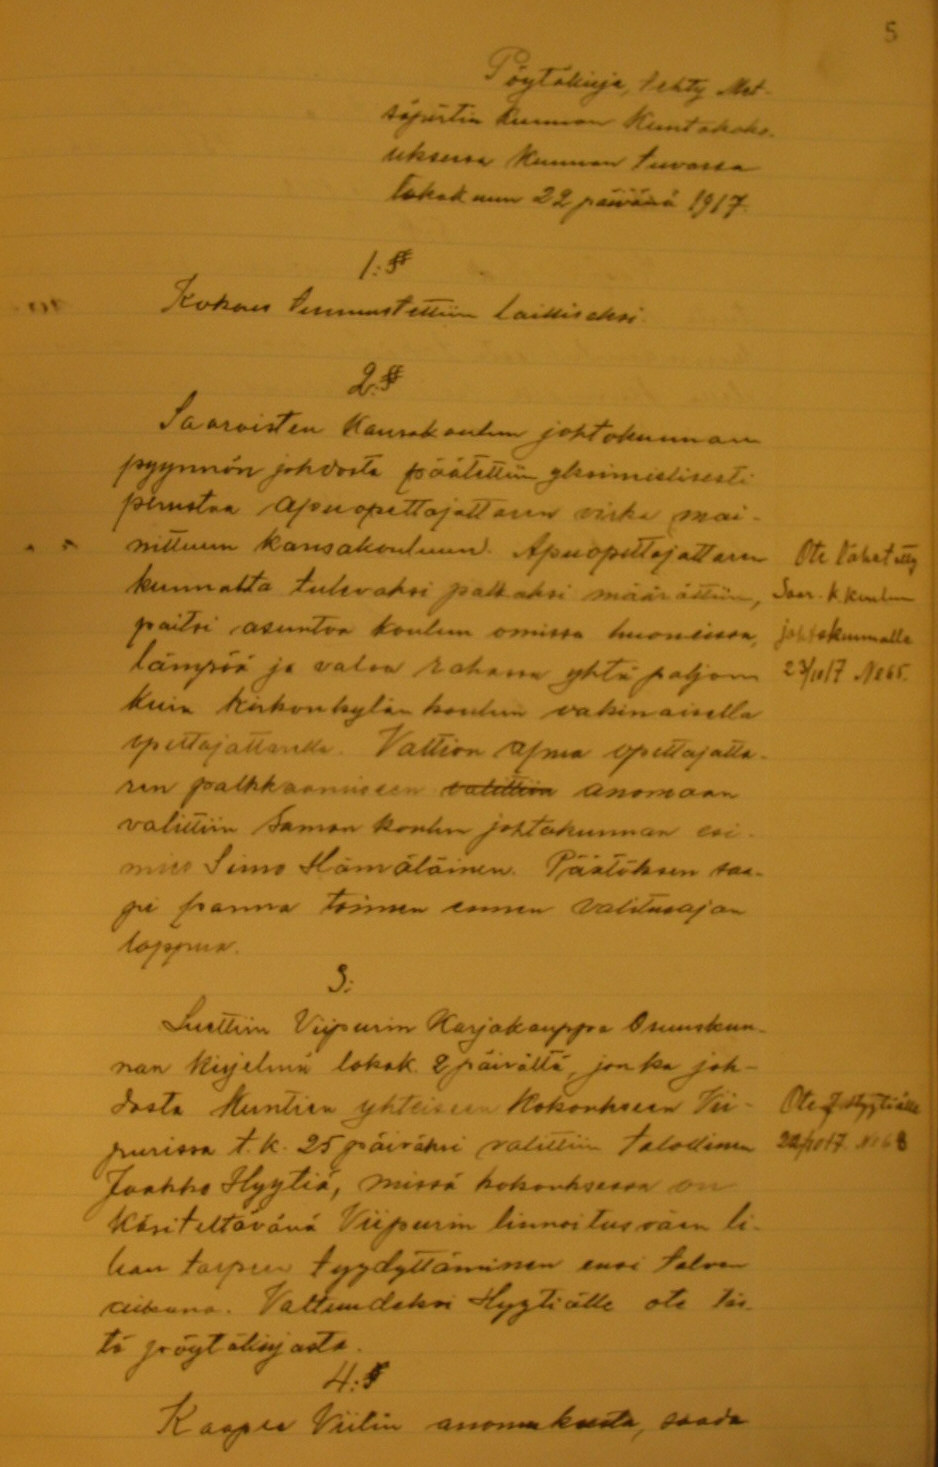 5
Pöytäkirja, tehty Met-
säpirtin Kunnan Kuntakoko-
uksessa Kunnan tuvassa
lokakuun 22 päivänä 1917.
1:§
Kokous tunnustettiin lailliseksi.
2:§
Saaroisten Kansakoulun johtokunnan
pyynnön johdosta päätettiin yksimielisesti
perustaa apuopettajattaren virka mai-
nittuun kansakouluun. Apuopettajattaren
kunnalta tulevaksi palkaksi määrättiin,
paitsi asuntoa koulun omissa huoneissa,
lämpöä ja valoa rahassa yhtä paljon
kuin kirkonkylän koulun vakinaisella
opettajattarella. Valtion apua opettajatta-
ren palkkaamiseen valittiin anomaan
valittiin saman koulun johtokunnan esi-
mies Simo Hämäläinen. Päätöksen saa-
pi panna toimeen ennen valitusajan
loppua.
Ote lähetetty
Saar. k.koulun
johtokunnalle
23/10 17 No 65.
3:
Luettiin Viipurin Karjakauppa Osuuskun-
nan kirjelmä lokak. 2 päivältä, jonka joh-
dosta Kuntien yhteiseen Kokoukseen Vii-
purissa t.k. 25 päiväksi valittiin talollinen
Jaakko Hyytiä, missä kokouksessa on
käsiteltävänä Viipurin linnoitusväen li-
han tarpeen tyydyttäminen ensi talven
aikana. Valtuudeksi Hyytiälle ote täs-
tä pöytäkirjasta.
Ote J. Hyytiälle
22/10 17. No 63
4:§
Kaapre Viilin anomuksesta, saada